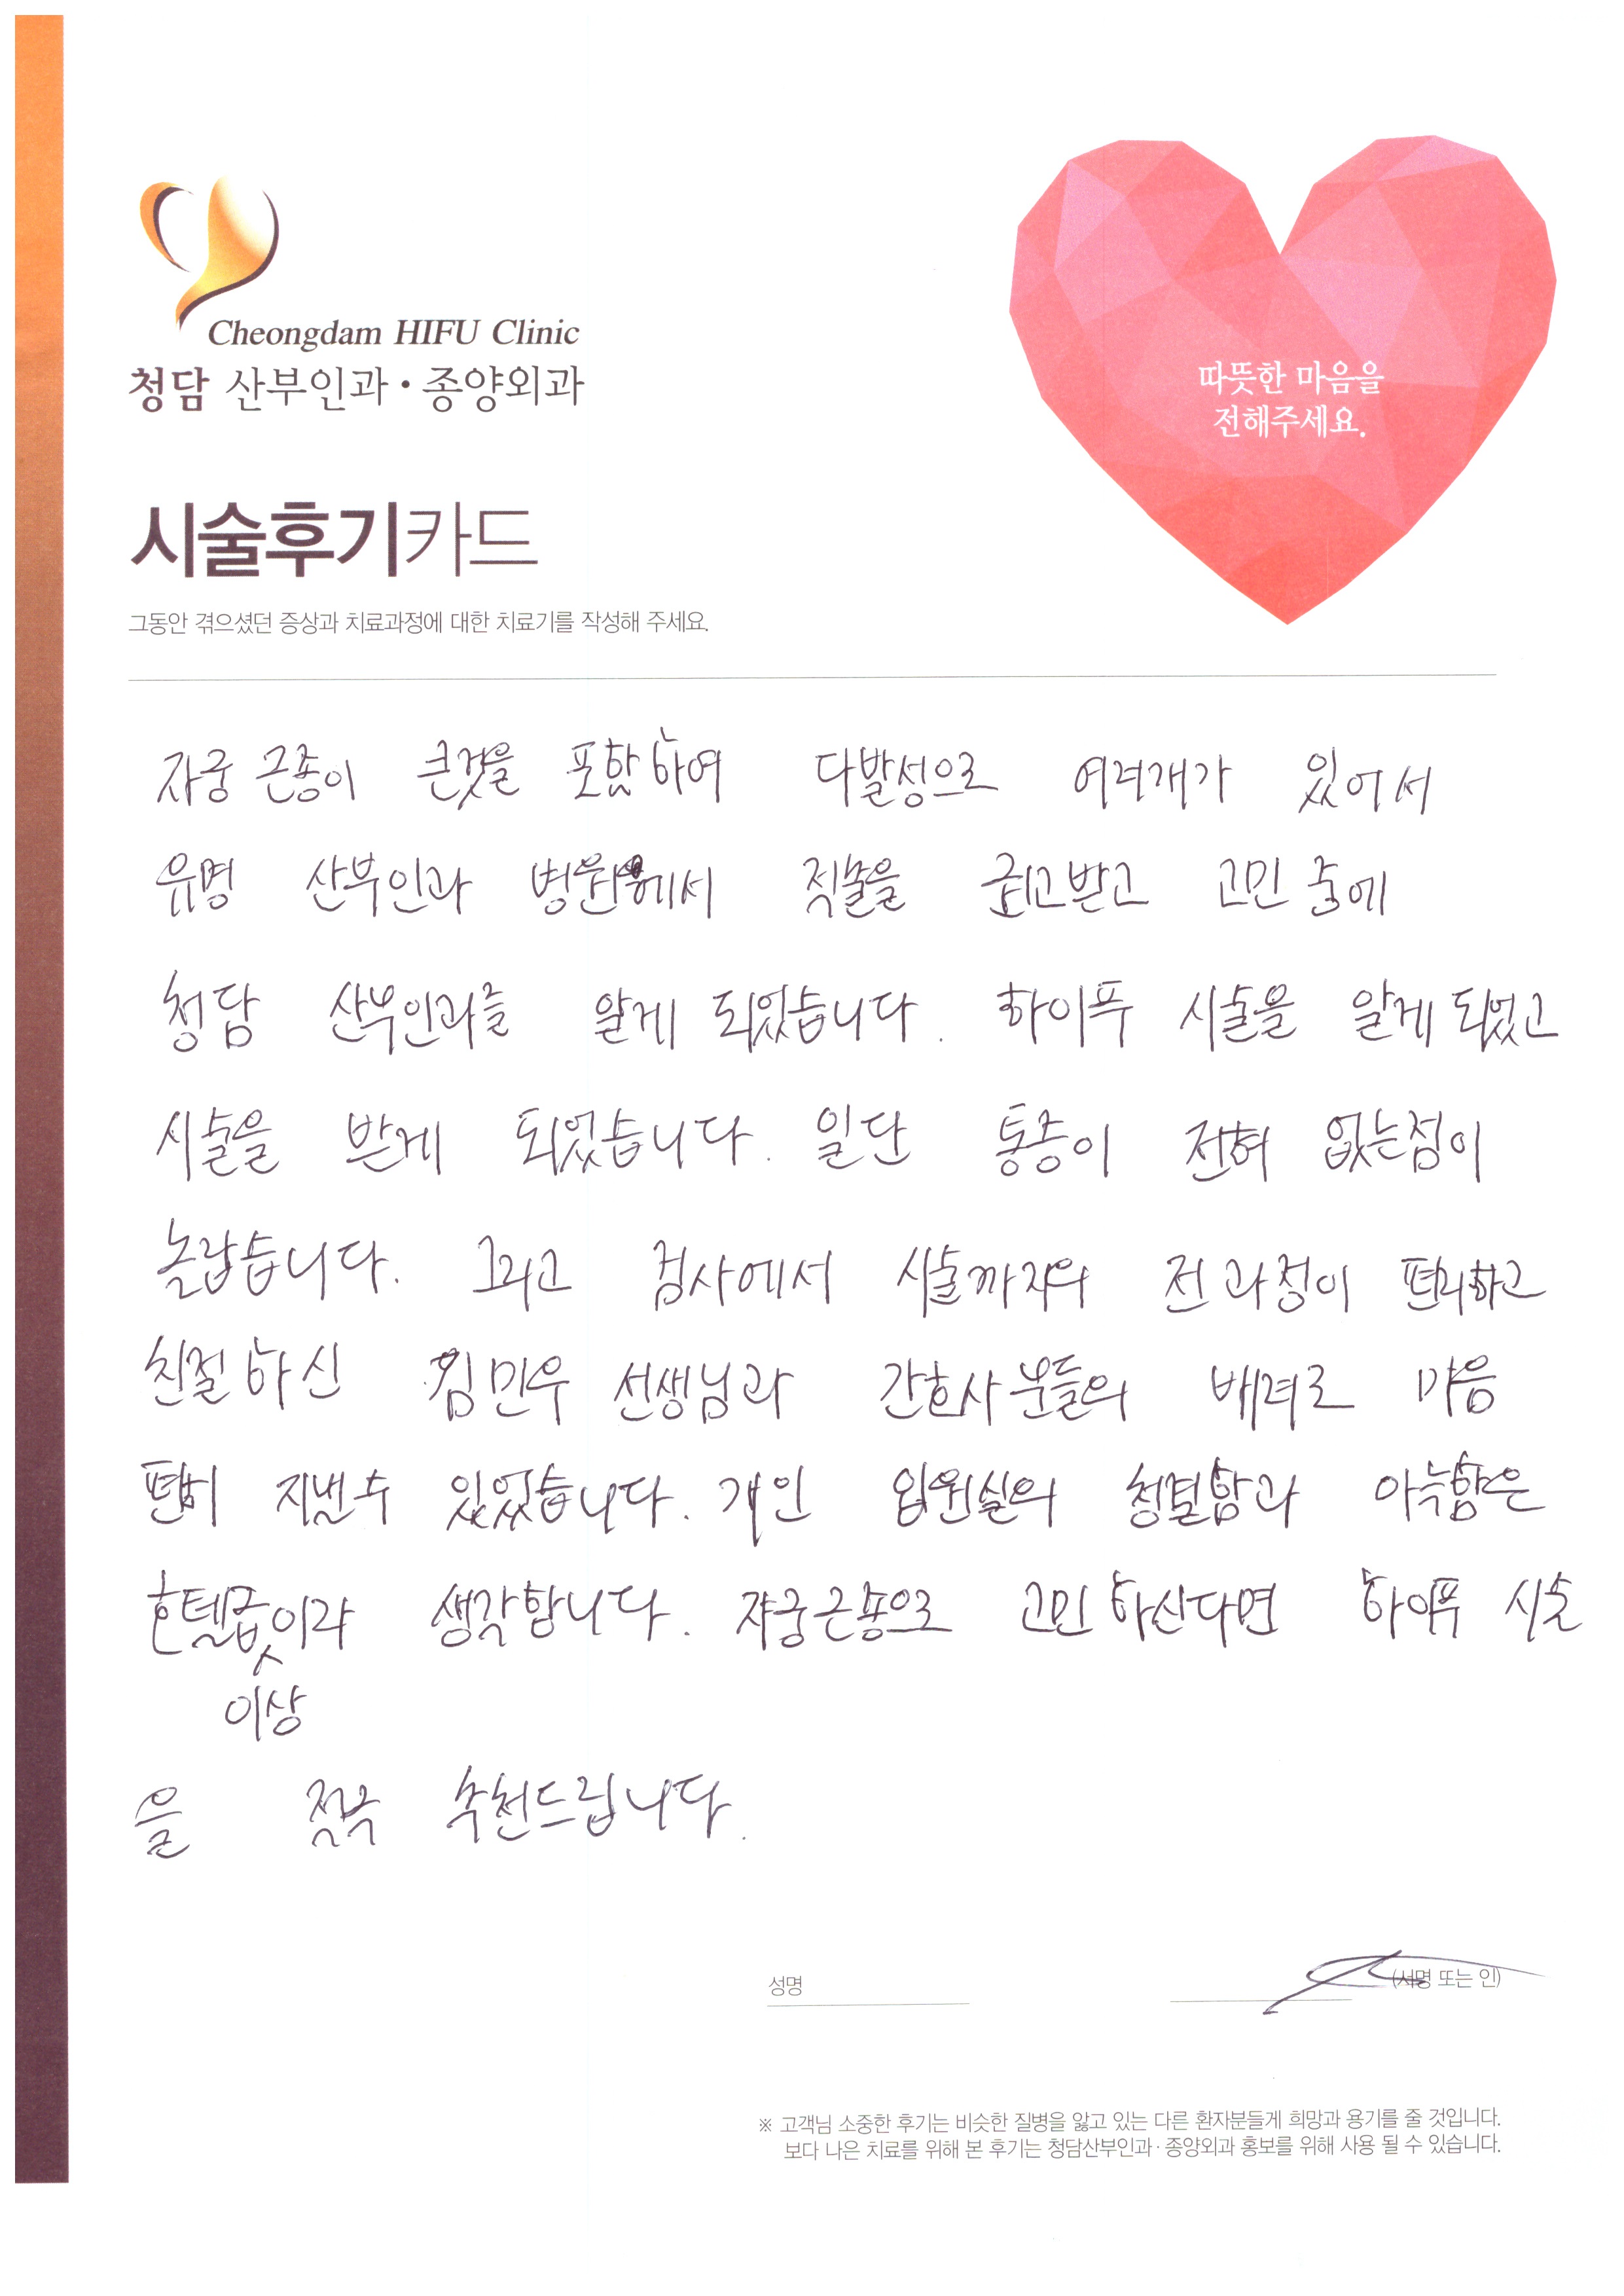 Cheongdam HIFU Clinic
청담 산부인과·종양외과
따뜻한 마음을
전해주세요.
시술후기카드
그동안 겪으셨던 증상과 치료과정에 대한 치료기를 작성해 주세요.
자궁 근종이 큰것을 포함하여 다발성으로 여러개가 있어서
유명 산부인과 병원에서 적출을 권고받고 고민 중에
청담 산부인과를 알게 되었습니다. 하이푸 시술을 알게 되었고
시술을 받게 되었습니다. 일단 통증이 전혀 없는점이
놀랍습니다. 그리고 검사에서 시술까지의 전 과정이 편리하고
친절하신 김민우 선생님과 간호사분들의 배려로 마음
편히 지낼수 있었습니다. 개인 입원실의 청결함과 아늑함은
호텔급이라 생각합니다. 자궁근종으로 고민하신다면 하이푸 시술
이상
을 적극 추천드립니다.
성명
(서명 또는 인)
※ 고객님 소중한 후기는 비슷한 질병을 앓고 있는 다른 환자분들게 희망과 용기를 줄 것입니다.
보다 나은 치료를 위해 본 후기는 청담산부인과·종양외과 홍보를 위해 사용 될 수 있습니다.